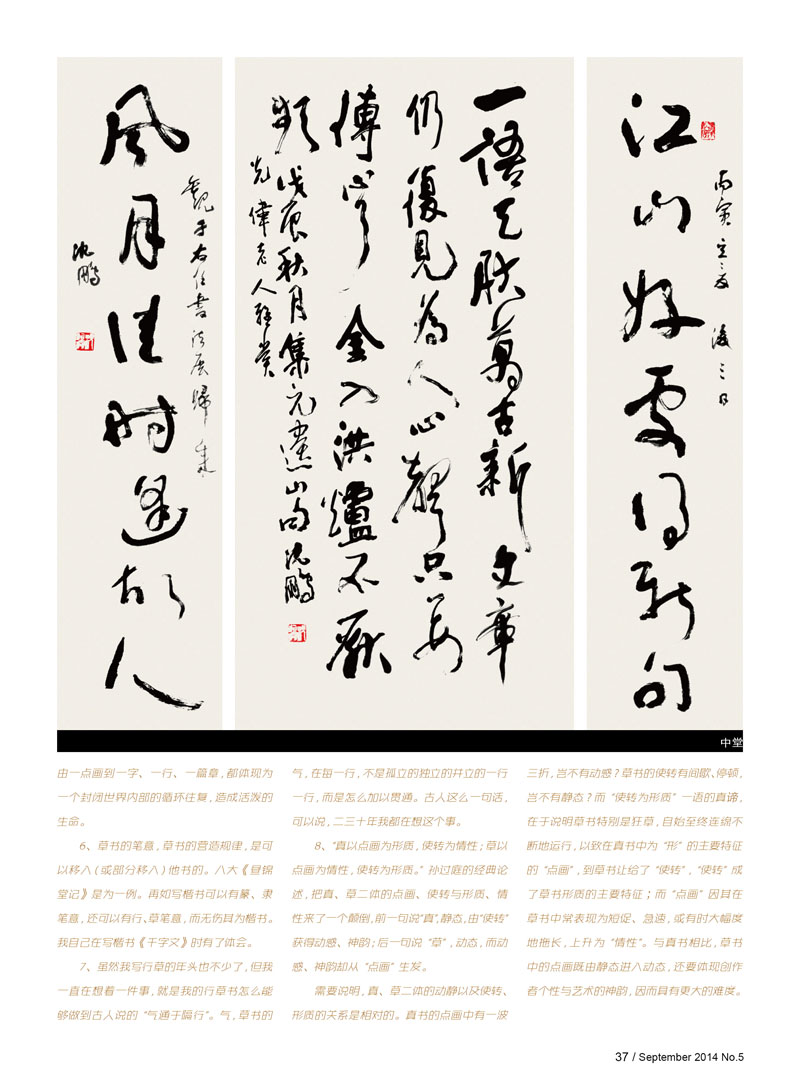 江山好處得新句
丙寅立夏後三日
一語天然萬古新文章
仍復見為人心聲只要
傳心了金入洪爐不厭
頻戊辰秋月集元遺山句沈鵬
光偉老人雅賞
風月佳時逢故人
觀于右任書法展歸來
沈鵬
中堂
由一点画到一字、一行、一篇章，都体现为
一个封闭世界内部的循环往复，造成活泼的
生命。
6、草书的笔意，草书的营造规律，是可
以移入（或部分移入）他书的。八大《昼锦
堂记》是为一例。再如写楷书可以有篆、隶
笔意，还可以有行、草笔意，而无伤其为楷书。
我自己在写楷书《千字文》时有了体会。
7、虽然我写行草的年头也不少了，但我
一直在想着一件事，就是我的行草书怎么能
够做到古人说的“气通于隔行”。气，草书的
气，在每一行，不是孤立的独立的并立的一行
一行，而是怎么加以贯通。古人这么一句话，
可以说，二三十年我都在想这个事。
8、“真以点画为形质，使转为情性；草以
点画为情性，使转为形质。”孙过庭的经典论
述，把真、草二体的点画、使转与形质、情
性来了一个颠倒，前一句说“真”，静态，由“使转”
获得动感、神韵；后一句说“草”，动态，而动
感、神韵却从“点画”生发。
需要说明，真、草二体的动静以及使转、
形质的关系是相对的。真书的点画中有一波
三折，岂不有动感？草书的使转有间歇、停顿，
岂不有静态？而“使转为形质”一语的真谛，
在于说明草书特别是狂草，自始至终连绵不
断地运行，以致在真书中为“形”的主要特征
的“点画”，到草书让给了“使转”，“使转”成
了草书形质的主要特征；而“点画”因其在
草书中常表现为短促、急速，或有时大幅度
地拖长，上升为“情性”。与真书相比，草书
中的点画既由静态进入动态，还要体现创作
者个性与艺术的神韵，因而具有更大的难度。
37 / September 2014 No.5